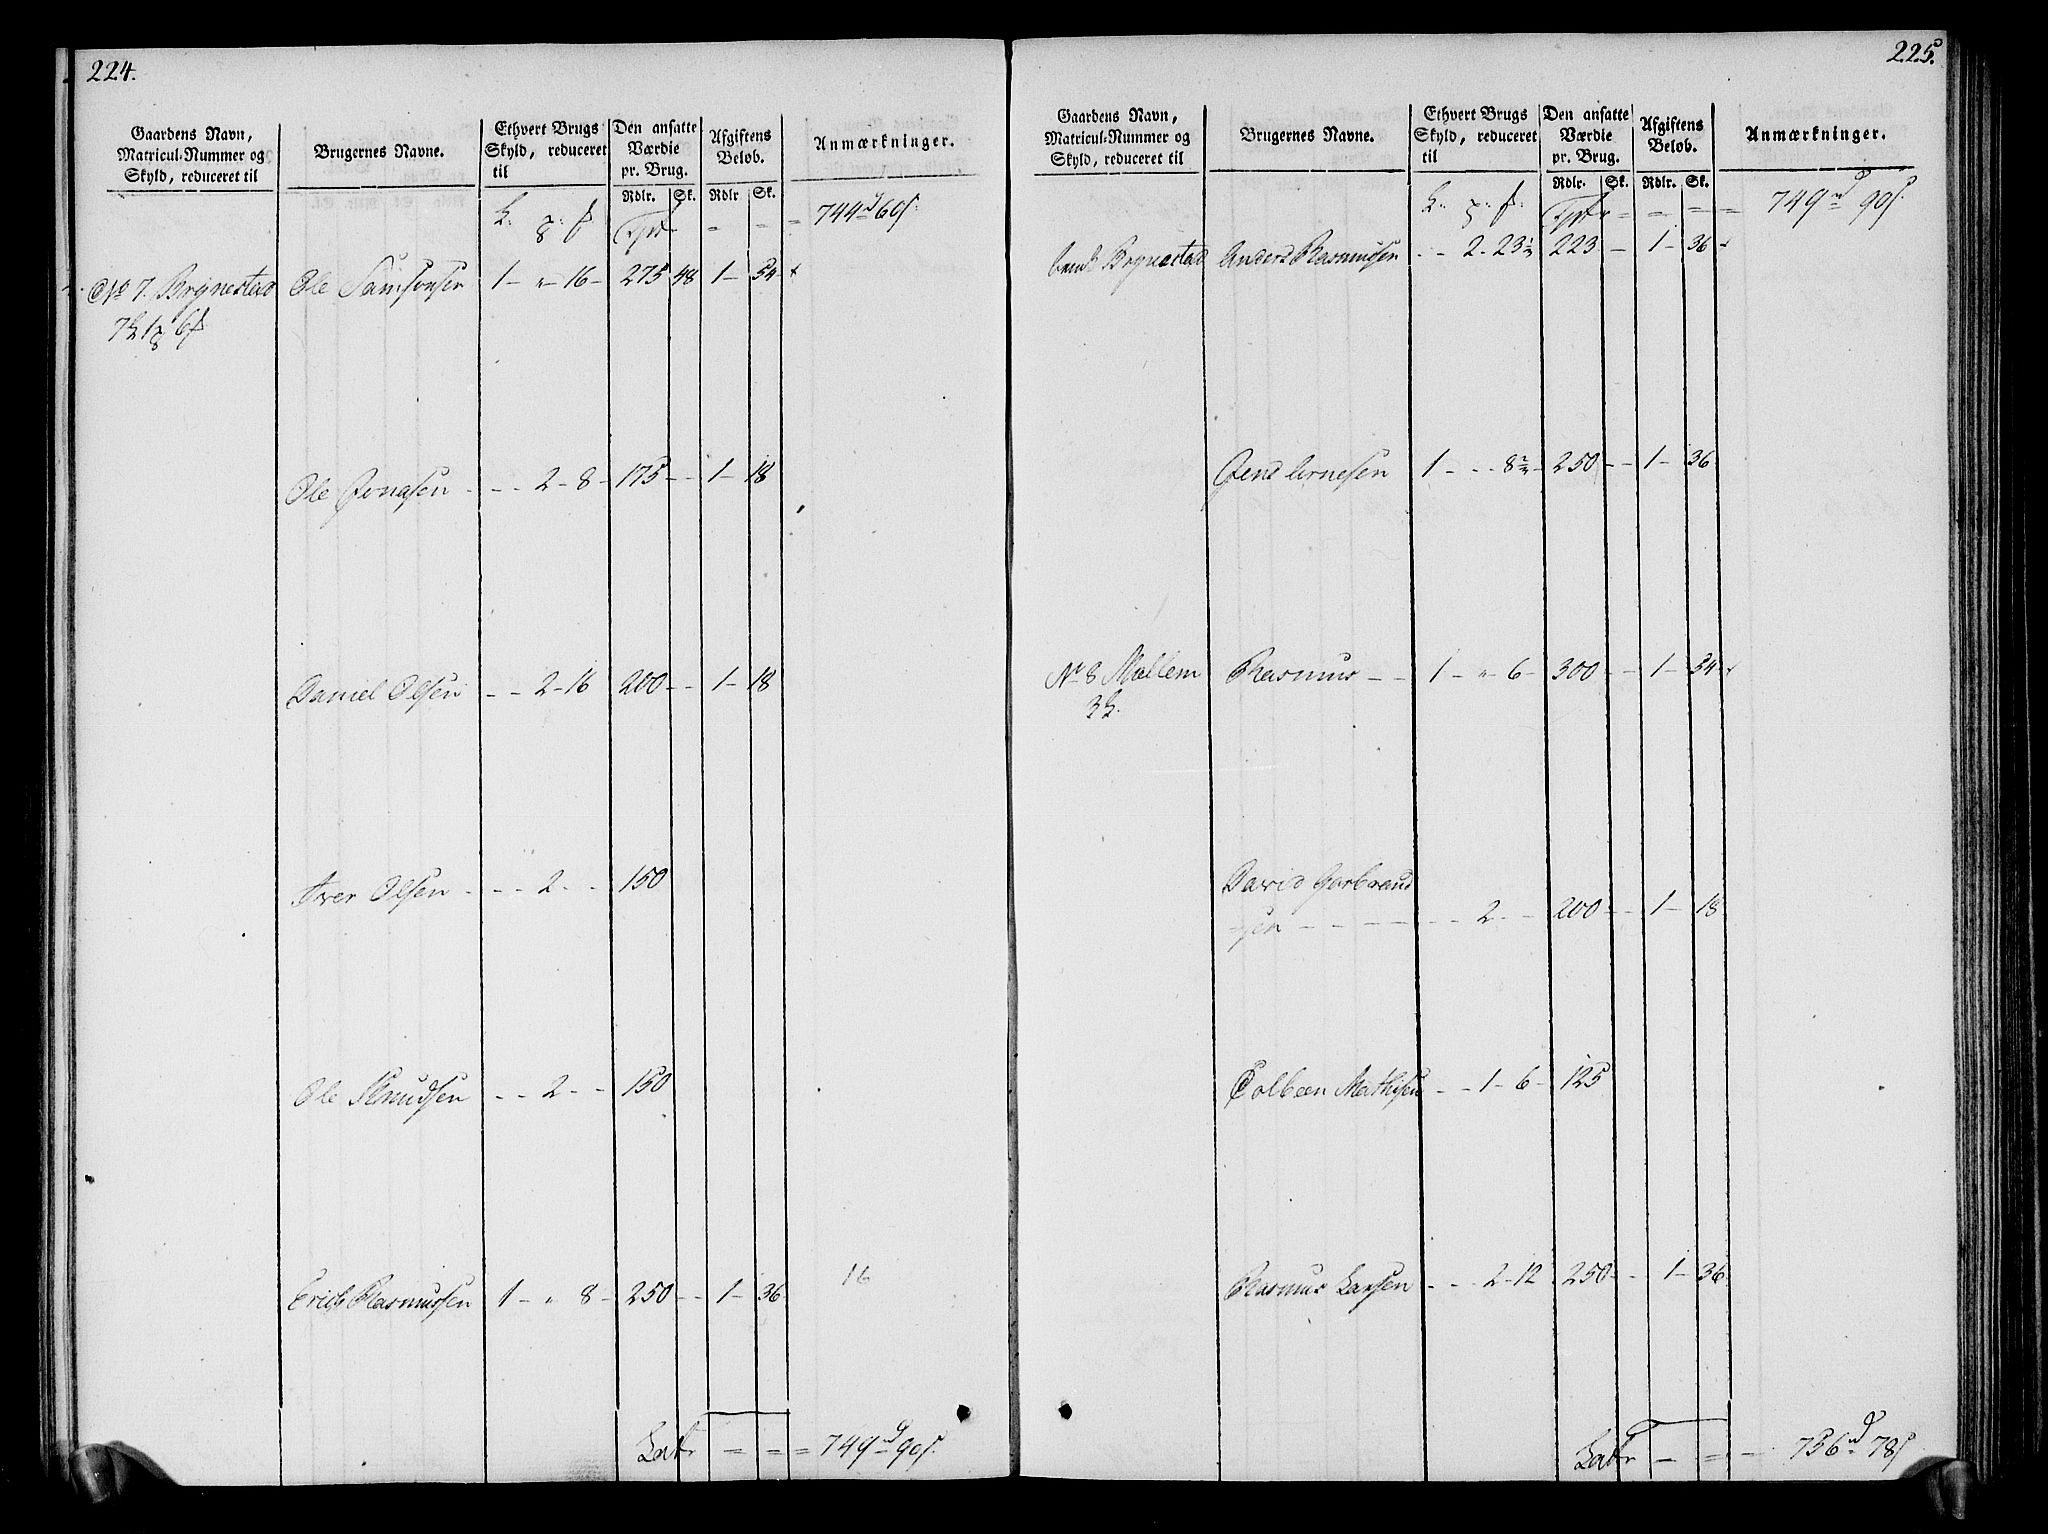 224.
Gaardens Navn, Matricul-Nummer og Skyld, reduceret til | Brugernes Navne. | Ethvert Brugs Skyld, reduceret til | Den ansatte Værdie pr. Brug. Rdlr. Sk. | Afgiftens Beløb. Rdlr Sk. | Anmærkninger.
Tpt = = = 744 rd 60 s.
No 7. Brynestad Ole Samsonsen 1 - " - 16 - 275 48 1 - 54
Ole Jonasen - - - 2 - 8 - 175 - - 1 - 18
Daniel Olsen - - 2 - 16 200 - - 1 - 18
Iver Olsen - - - 2 - - 150
Ole Knudsen - - - 2 - - 150
Erich Rasmussen 1 - " 8 - 250 - - 1 - 36
16
Latr = = = 749 rd 90 s.
225.
Gaardens Navn, Matricul-Nummer og Skyld, reduceret til | Brugernes Navne. | Ethvert Brugs Skyld, reduceret til | Den ansatte Værdie pr. Brug. Rdlr. Sk. | Afgiftens Beløb. Rdlr. Sk. | Anmærkninger.
Tptr = = = = 749 rd 90 s
Brynestad Anders Rasmussen - - 2 - 23½ 223 - 1 - 36
Jens Arnesen 1 - - - 8½ - 250 - - 1 - 36
No 8 Mollem Rasmus - - 1 - " 6 - 300 - - 1 - 54
David Gorbrand
-sen - - - - - 2 - - 200 - - 1 - 18
Colbeen Mathisen - - 1 - 6 - 125
Rasmus Larsen - - - 2 - 12 250 - - 1 - 36
Latr - = - 756 rd 78 s